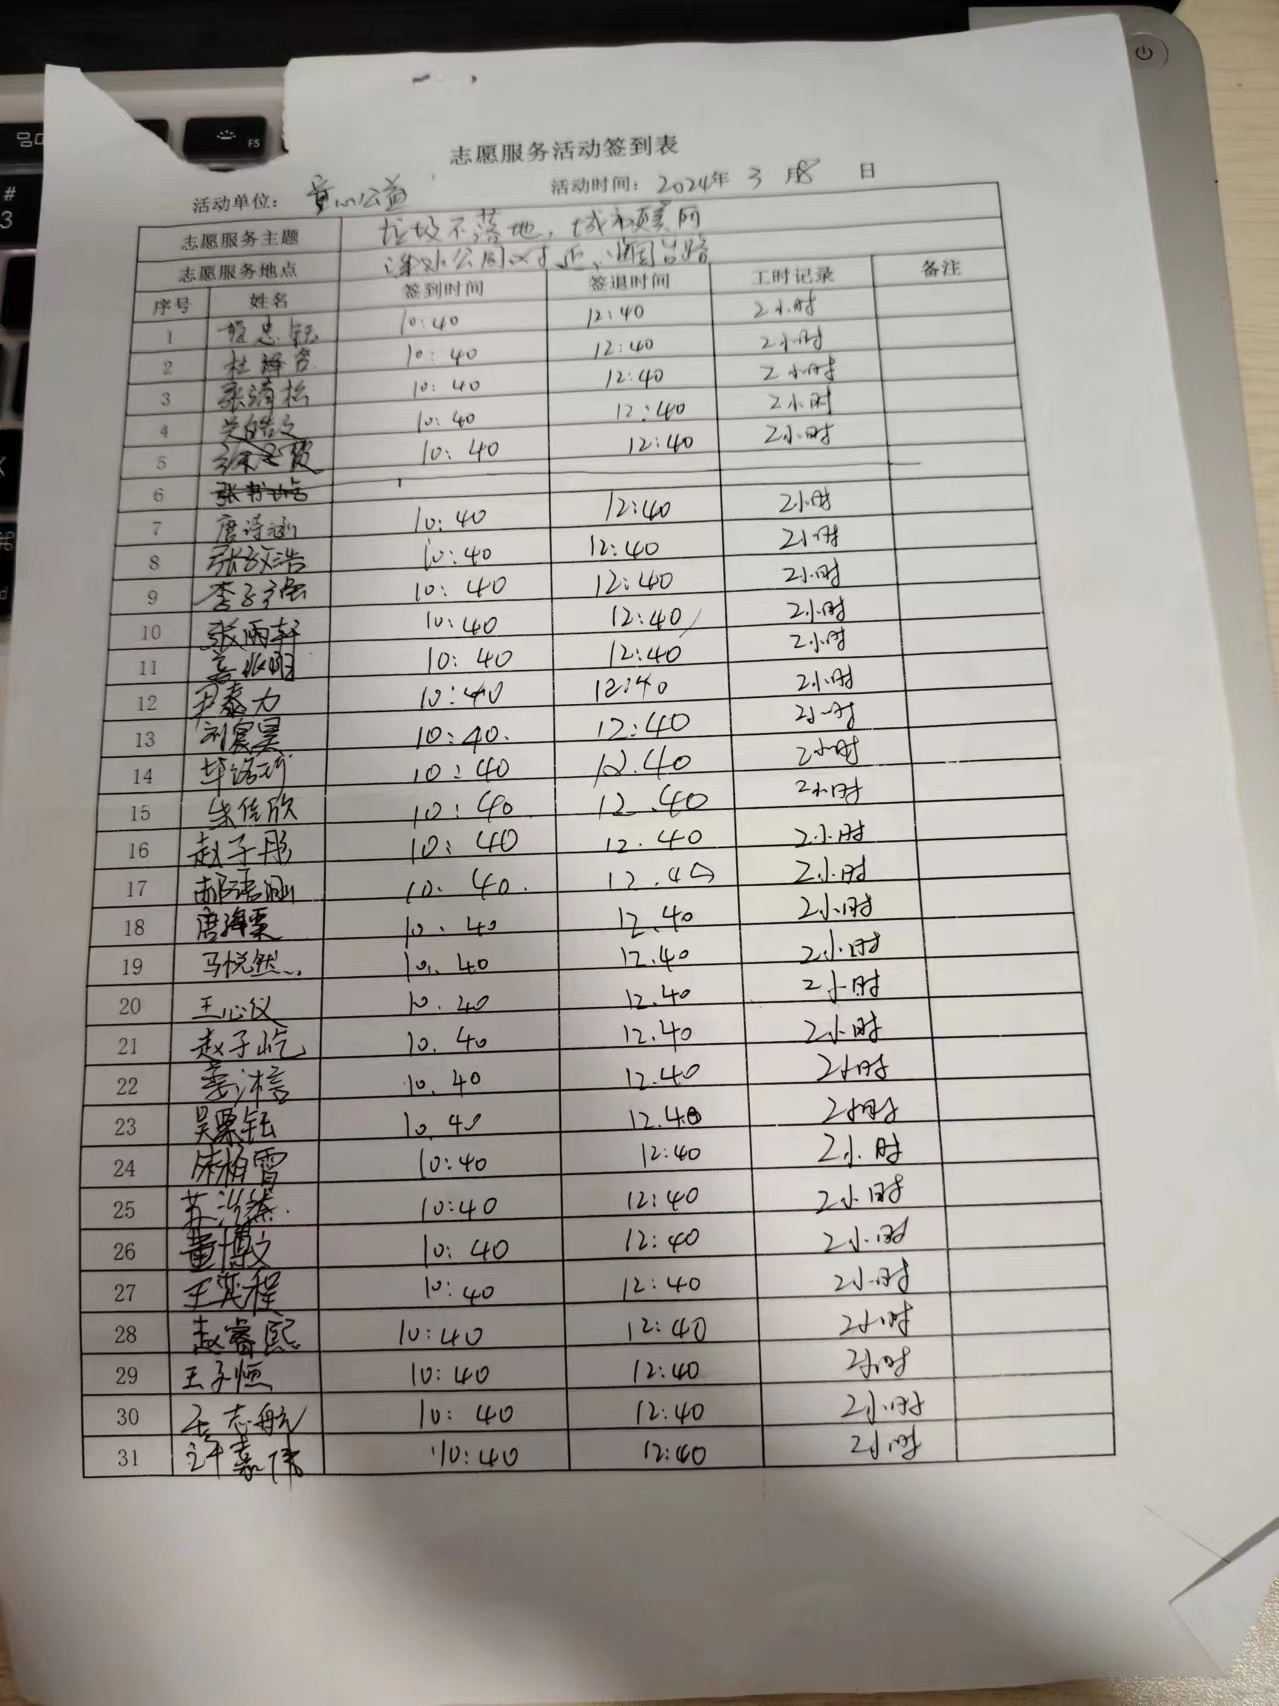 F5
#
3
志愿服务活动签到表
活动单位: 童心公益 活动时间: 2024年 3 月8 日
志愿服务主题 垃圾不落地,城市更美丽
志愿服务地点 公园 路
序号 姓名 签到时间 签退时间 工时记录 备注
1 10:40 12:40 2小时
2 10:40 12:40 2小时
3 10:40 12:40 2小时
4 10:40 12:40 2小时
5 10:40 12:40 2小时
6 张书皓
7 唐诗涵 10:40 12:40 2小时
8 10:40 12:40 2小时
9 李子强 10:40 12:40 2小时
10 张雨轩 10:40 12:40 2小时
11 10:40 12:40 2小时
12 尹泰力 10:40 12:40 2小时
13 刘宸昊 10:40. 12:40 2小时
14 10:40 12.40 2小时
15 朱佳欣 10:40 12.40 2小时
16 赵子彤 10:40 12.40 2小时
17 郝语涵 10.40. 12.40 2小时
18 唐海粟 10.40 12.40 2小时
19 马悦然 10.40 12.40 2小时
20 王心仪 10.40 12.40 2小时
21 赵子屹 10.40 12.40 2小时
22 10.40 12.40 2小时
23 吴栗钰 10.40 12.40 2小时
24 10:40 12:40 2小时
25 10:40 12:40 2小时
26 董博文 10:40 12:40 2小时
27 10:40 12:40 2小时
28 赵睿熙 10:40 12:40 2小时
29 王子恒 10:40 12:40 2小时
30 志航 10:40 12:40 2小时
31 许嘉伟 10:40 12:40 2小时